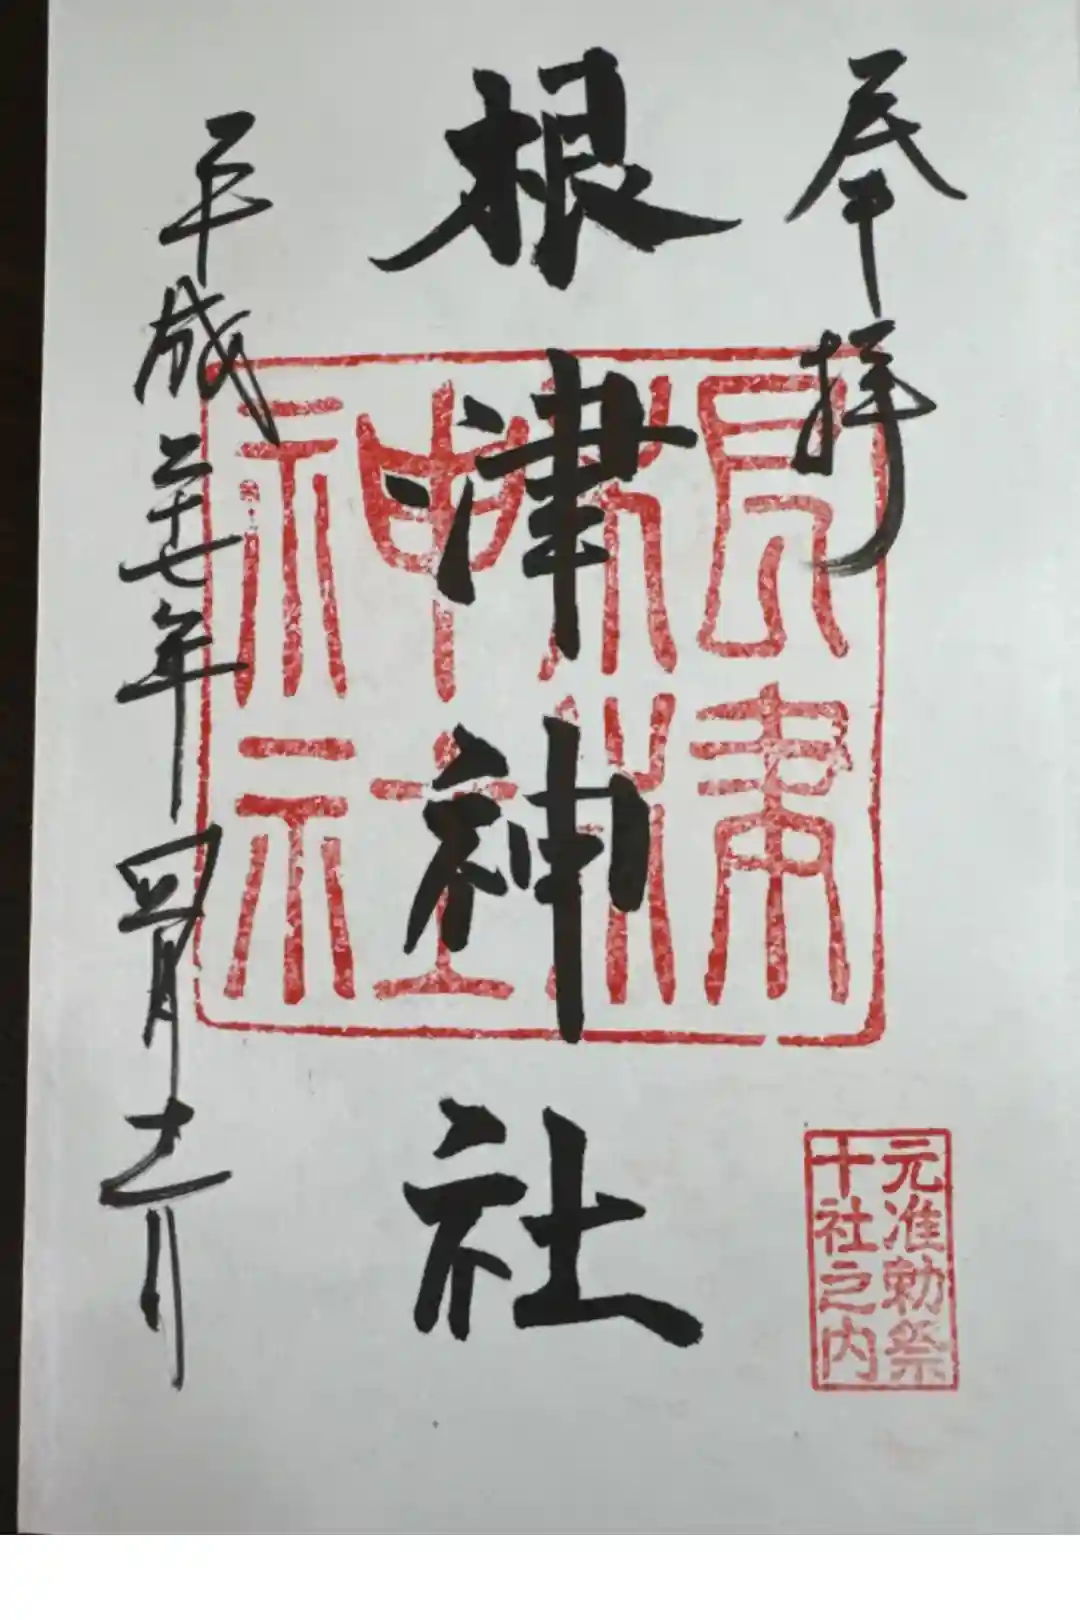 奉拝
根津神社
平成二十七年四月十二日
根津
神社
元准勅祭
十社之内